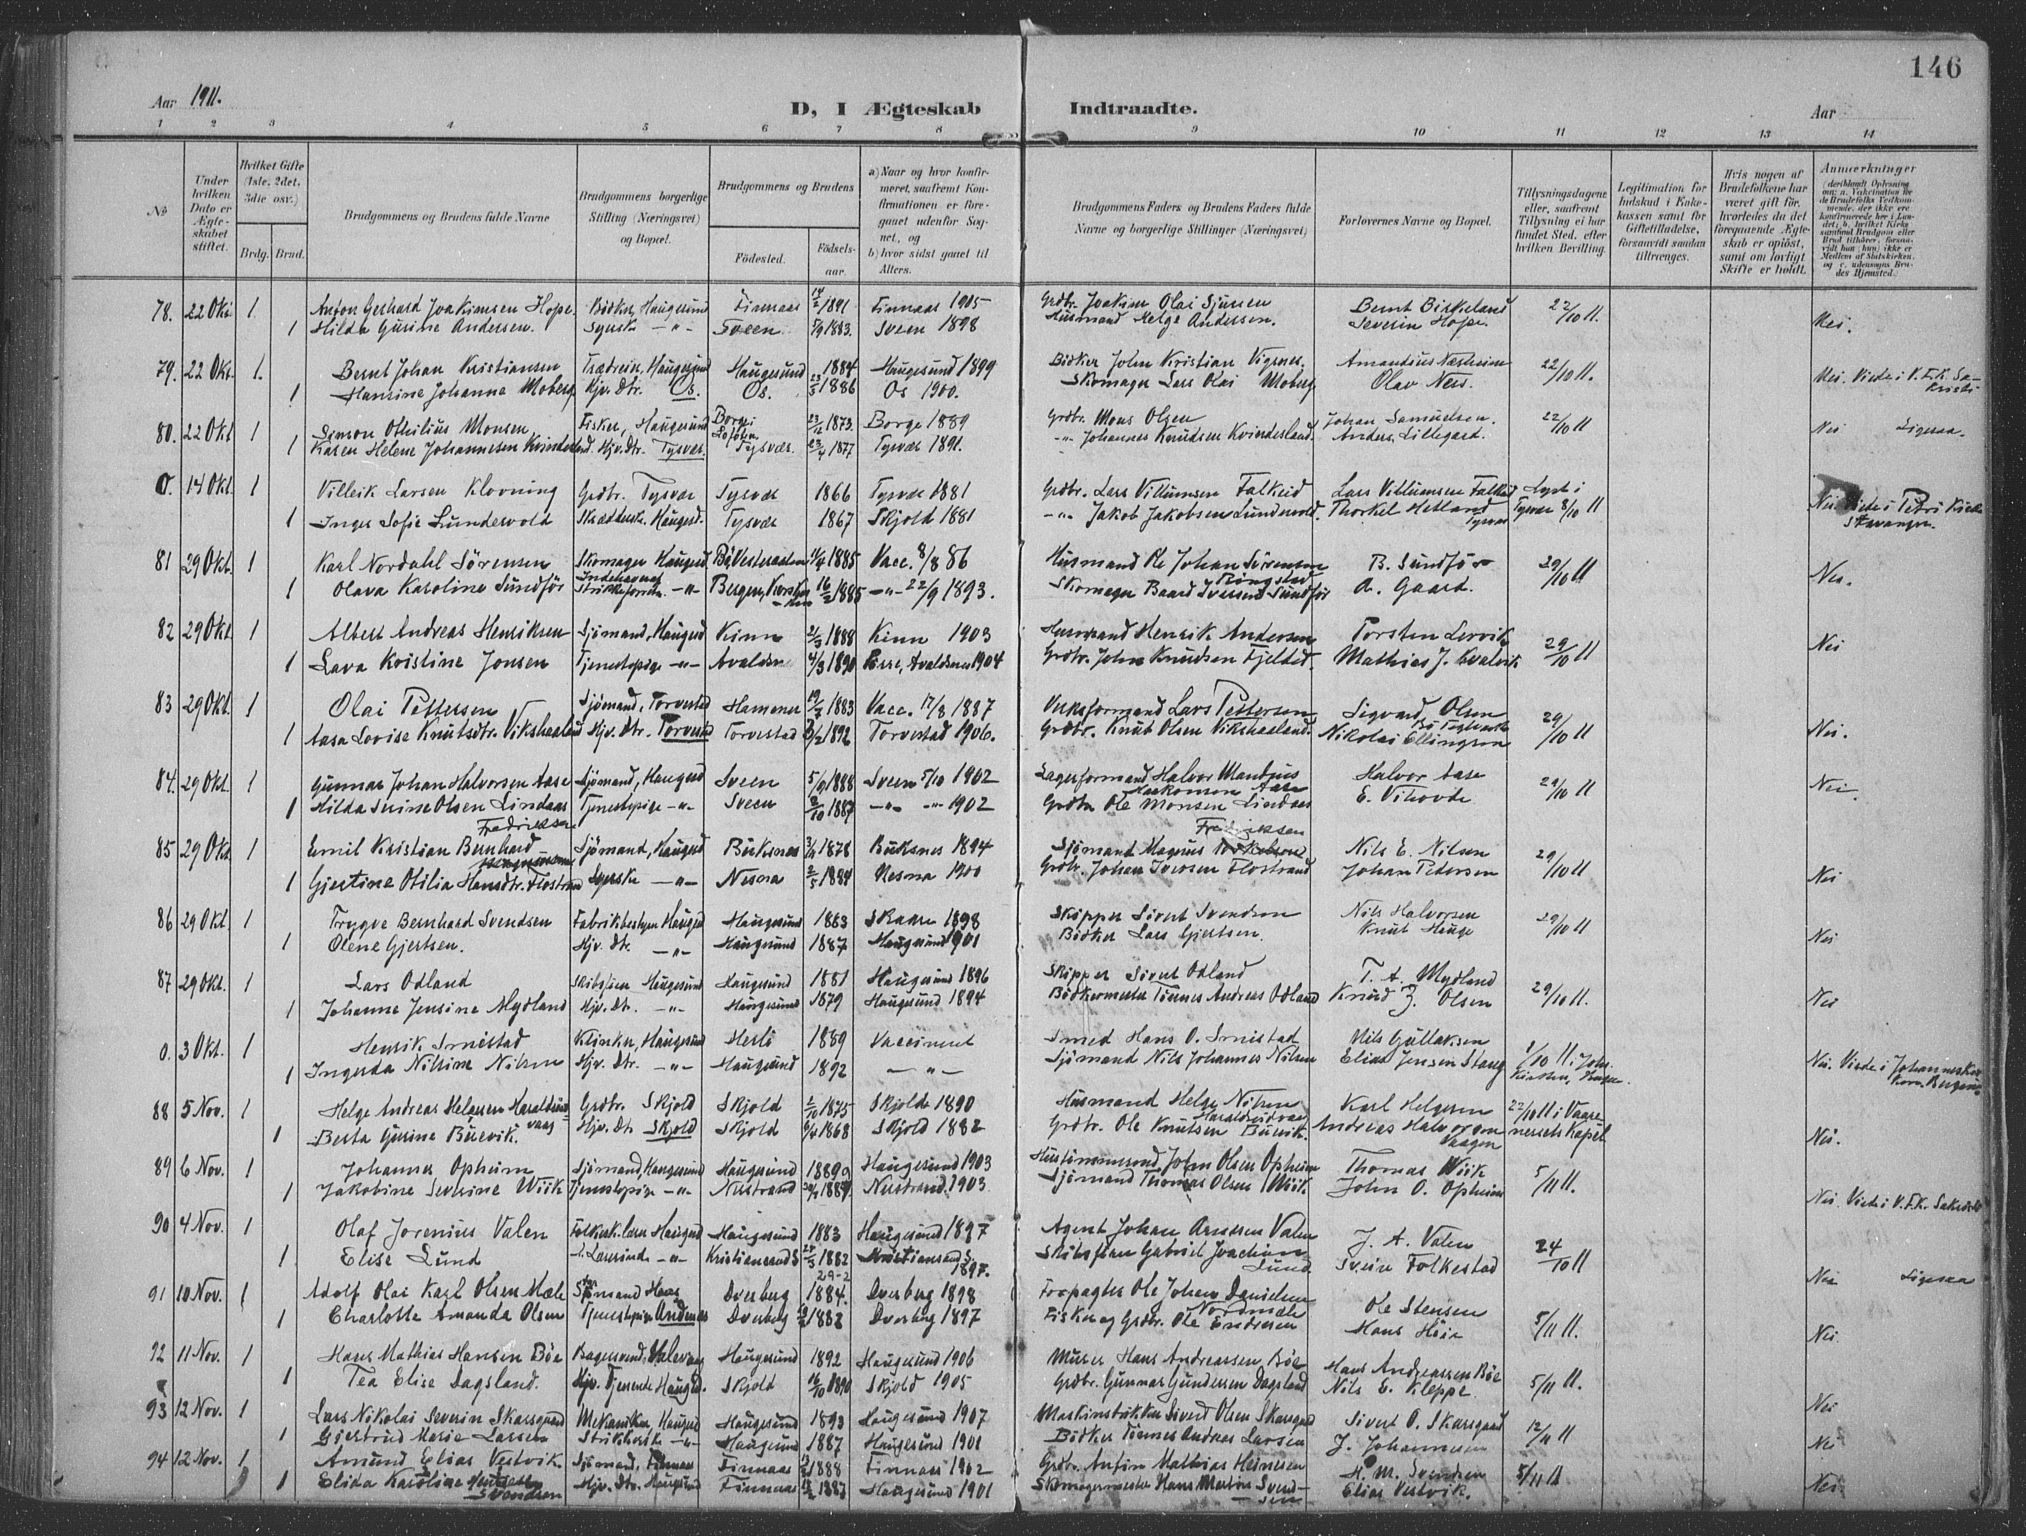 146
Aar 1911.
D, I Ægteskab Indtraadte.
Aar
1 2 3 4 5 6 7 8 9 10 11 12 13 14
No
Under hvilken Dato er Ægteskabet stiftet.
Hvilket Gifte (1ste, 2det, 3die osv.)
Brdg. Brud.
Brudgommens og Brudens fulde Navne
Brudgommens borgerlige Stilling (Næringsvei) og Bopæl.
Brudgommens og Brudens
Födested.
Födselsaar.
a) Naar og hvor konfirmeret, saafremt Konfirmationen er foregaaet udenfor Sognet, og
b) hvor sidst gaaet til Alters.
Brudgommens Faders og Brudens Faders fulde Navne og borgerlige Stillinger (Næringsvei)
Forlovernes Navne og Bopæl.
Tillysningsdagene eller, saafremt Tillysning ei har fundet Sted, efter hvilken Bevilling.
Legitimation for Indskud i Enkekassen samt for Giftetilladelse, forsaavidt saadan tiltrænges.
Hvis nogen af Brudefolkene har været gift för, hvorledes da det foregaaende Ægteskab er oplöst, samt om lovligt Skifte er holdt.
Anmærkninger
78. 22 Okt. 1 Anton Gerhard Joakimsen Hope Bödker, Haugesund Finnaas 14/2 1891 Finnaas 1905 Grdbr. Joakim Olai Sjursen Bernt Birkeland 22/10 11.
1 Hilda Gurine Andersen. Syerske -"- Sveen 5/9 1883. Sveen 1898 Husmand Helge Andersen. Severin Hope. Nei.
79. 22 Okt. 1. Bernt Johan Kristiansen Haugesund 1884 Haugesund 1899 Bödker John Kristian Vigenes. Amandius Næsheim 22/10 11.
1 Hansine Johanne Moberg Hjv. Dtr. Os. Os. 23/5 1886 Os 1900. Skomager Lars Olai Moberg Olav Ners. Nei. Viede i V.F.K.
80. 22 Okt. 1 Simon Othilius Monsen, Fisker, Haugesund Borge Lofoten 23/12 1873. Borge 1889 Grdbr. Mons Olsen Johan Samuelsen. 22/10 11
1 Karen Helene Johannesen Kvindesland Hjv. Dtr. Tysvær Tysvær. 23/4 1877 Tysvær 1891. -"- Johannes Knudsen Kvindesland. Anders Lillegard. Nei Ligesaa.
0. 14 Okt. 1 Villeik Larsen Klovning Grdbr. Tysvær Tysvær 1866 Tysvær 1881 Grdbr. Lars Villumsen Falkeid Lars Villumsen Falkeid Lyst i
1 Inger Sofie Lundervold Haugesd. Tysvær 1867 Skjold 1881 -"- Jakob Jakobsen Lundervold. Thorkel Hetland Tysvær Tysvær 8/10 11 Nei Viede i Petri Kirke Stavanger.
81 29 Okt. 1 Karl Nordahl Sörensen Skomager Haugesd. Bö, Vesteraalen 11/4 1885 Vacc. 8/8 86 Husmand Ole Johan Sörensen Ringstad B. Sundför 29/10 11
1 Olava Karoline Sundför -"- Bergen, Korskirken 16/2 1885 -"- 22/9 1893. Skomager Baard Iversen Sundför A. Gaard. Nei.
82 29 Okt. 1 Albert Andreas Henriksen Sjömand, Haugesd Kinn 21/3 1888 Kinn 1903 Husmand Henrik Andersen Torsten Lervik 29/10 11
1 Lava Kristine Jonsen Tjenestepige -"- Avaldsnes 4/3 1890 Avaldsnes 1904 Grdbr. John Knudsen Fjelted. Mathias J. Kvalvik Nei
83 29 Okt. 1 Olai Pettersen Sjömand, Torvestad Hamener 1883 Vacc. 17/8 1887 Lars Pettersen Sigvard Olsen 29/10 11
1 Aasa Lovise Knutsdtr. Vikshaaland Hjv. Dtr. Torvestad Torvestad 1892 Torvestad 1906. Grdbr. Knut Olsen Vikshaaland. Nikolai Ellingsen Nei.
84. 29 Okt. 1 Gunnar Johan Halvorsen Aase Sjömand, Haugesd Sveen 5/9 1888 Sveen 5/10 1902 Lagerformand Halvor Aase Halvor Aase 29/10 11
1 Hilda Serine Olsen Lindaas Tjenestepige -"- Sveen 1887 -"- -"- 1902 Grdbr. Ole Monsen Lindaas E. Vihovde Nei.
85 29 Okt. 1 Emil Kristian Bernhard Fredriksen Sjömand, Haugesd Buksnes 1878 Buksnes 1894 Sjömand Magnus Fredriksen Nils E. Nilsen 29/10 11
1 Gjertine Otilia Hansdtr. Flostrand Syerske -"- Nesna 2/5 1884 Nesna 1900 Grdbr. Johan Iversen Flostrand Johan Pedersen Nei
86 29 Okt. 1 Trygve Bernhard Svendsen Fabrikbestyrer Haugesd Haugesund 1883 Skaare 1898 Skipper Sivert Svendsen Nils Halvorsen 29/10 11
1 Olene Gjertsen. Hjv. Dtr. -"- Haugesund 1887 Haugesund 1901 Bödker Lars Gjertsen. Knut Hauge Nei
87 29 Okt. 1 Lars Odland Haugesund Haugesund 1881 Haugesund 1896 Skipper Sivert Odland T. A. Mydland 29/10 11.
1 Johanne Jensine Mydland Hjv. Dtr. -"- Haugesund 1879 Haugesund 1894 Bödkermester Tönnes Andreas Odland Knud J. Olsen Nei
0. 3 Okt. 1 Henrik Irnestad Klinker, Haugesund Herlö 1889 Vaccineret Smed Hans O. Irnestad Nils Gullaksen 1/10 11. i Joh.
1 Ingerda Nilsine Nilsen Hjv. Dtr. -"- Haugesund 1892 -"- Sjömand Nils Johannes Nilsen Elias Jensen Stang Kirken, Bergen. Nei. Viede i Johanneskirken, Bergen.
88 5 Nov. 1 Helge Andreas Helgesen Haraldseidvaag Grdbr. Skjold Skjold 1875 Skjold 1890 Husmand Helge Nilsen Haraldseidvaag Karl Helgesen 22/10 11 i Vaare
1 Berta Gurine Buevik. Hjv. Dtr. Skjold Skjold 6/4 1868 Skjold 1882 Grdbr. Ole Knutsen Buevik. Andreas Halvorsen Vaagen Kapel Nei.
89 6 Nov. 1 Johannes Opheim Sjömand, Haugesund Haugesund 1889 Haugesund 1903 Hustömmermand John Olsen Opheim Thomas Wiik 5/11 11.
1 Jakobine Severine Wiik Tjenestepige -"- Nerstrand 1889. Nerstrand. 1903 Sjömand Thomas Olsen Wiik John O. Opheim Nei Viede i V.F.K.
90 4 Nov. 1 Olaf Jorenius Valen Haugesd Haugesund 1883 Haugesund 1897 Agent Johan Arnesen Valen J. A. Valen 24/10 11
1 Elise Lund -"- Kristianssand S 1882 Kristianssand S. 1897. Gabriel Joachim Lund Svein Folkestad Nei Ligesaa
91 10 Nov. 1 Adolf Olai Karl Olsen Mæle Sjömand Dverberg 1884. Dverberg 1898 Ole Johan Danielsen Nordmele Ole Stensen 5/11 11.
1 Charlotte Amanda Olsen Tjenestepige Andenes Dverberg 1882 Dverberg 1897 Fisker og Grdbr. Ole Endresen Hans Höie Nei
92 11 Nov. 1 Hans Mathias Hansen Böe Bagersvend, Haugesund 1892 Haugesund 1906 Murer Hans Andreassen Böe Hans Andreassen Böe 5/11 11.
1 Tea Elise Dagsland. Hjv. Tjeneste Haugesd. Skjold 16/10 1890 Skjold 1905 Grdbr. Gunnar Gundersen Dagsland Nils E. Kleppe. Nei
93 12 Nov. 1 Lars Nikolai Severin Skarsgaard Mekaniker, Haugesd Haugesund 1893 Haugesund 1907 Sivert Olsen Skarsgaard Sivert O. Skarsgaard 12/11 11
1 Gjertrud Marie Larsen Strikkerske -"- Haugesund 1887 Haugesund 1901 Bödker Tönnes Andreas Larsen J. Johannesen Nei
94 12 Nov. 1 Amund Elias Vestvik. Sjömand, Finnaas Finnaas 1888 Finnaas 1902 Grdbr. Anfin Mathias Heinesen H. M. Svendsen 5/11 11
1 Elida Karoline Svendsen Hjv. Dtr. Haugesund Finnaas 1887 Haugesund 1901 Skomagermester Hans Martin Svendsen Elias Vestvik. Nei